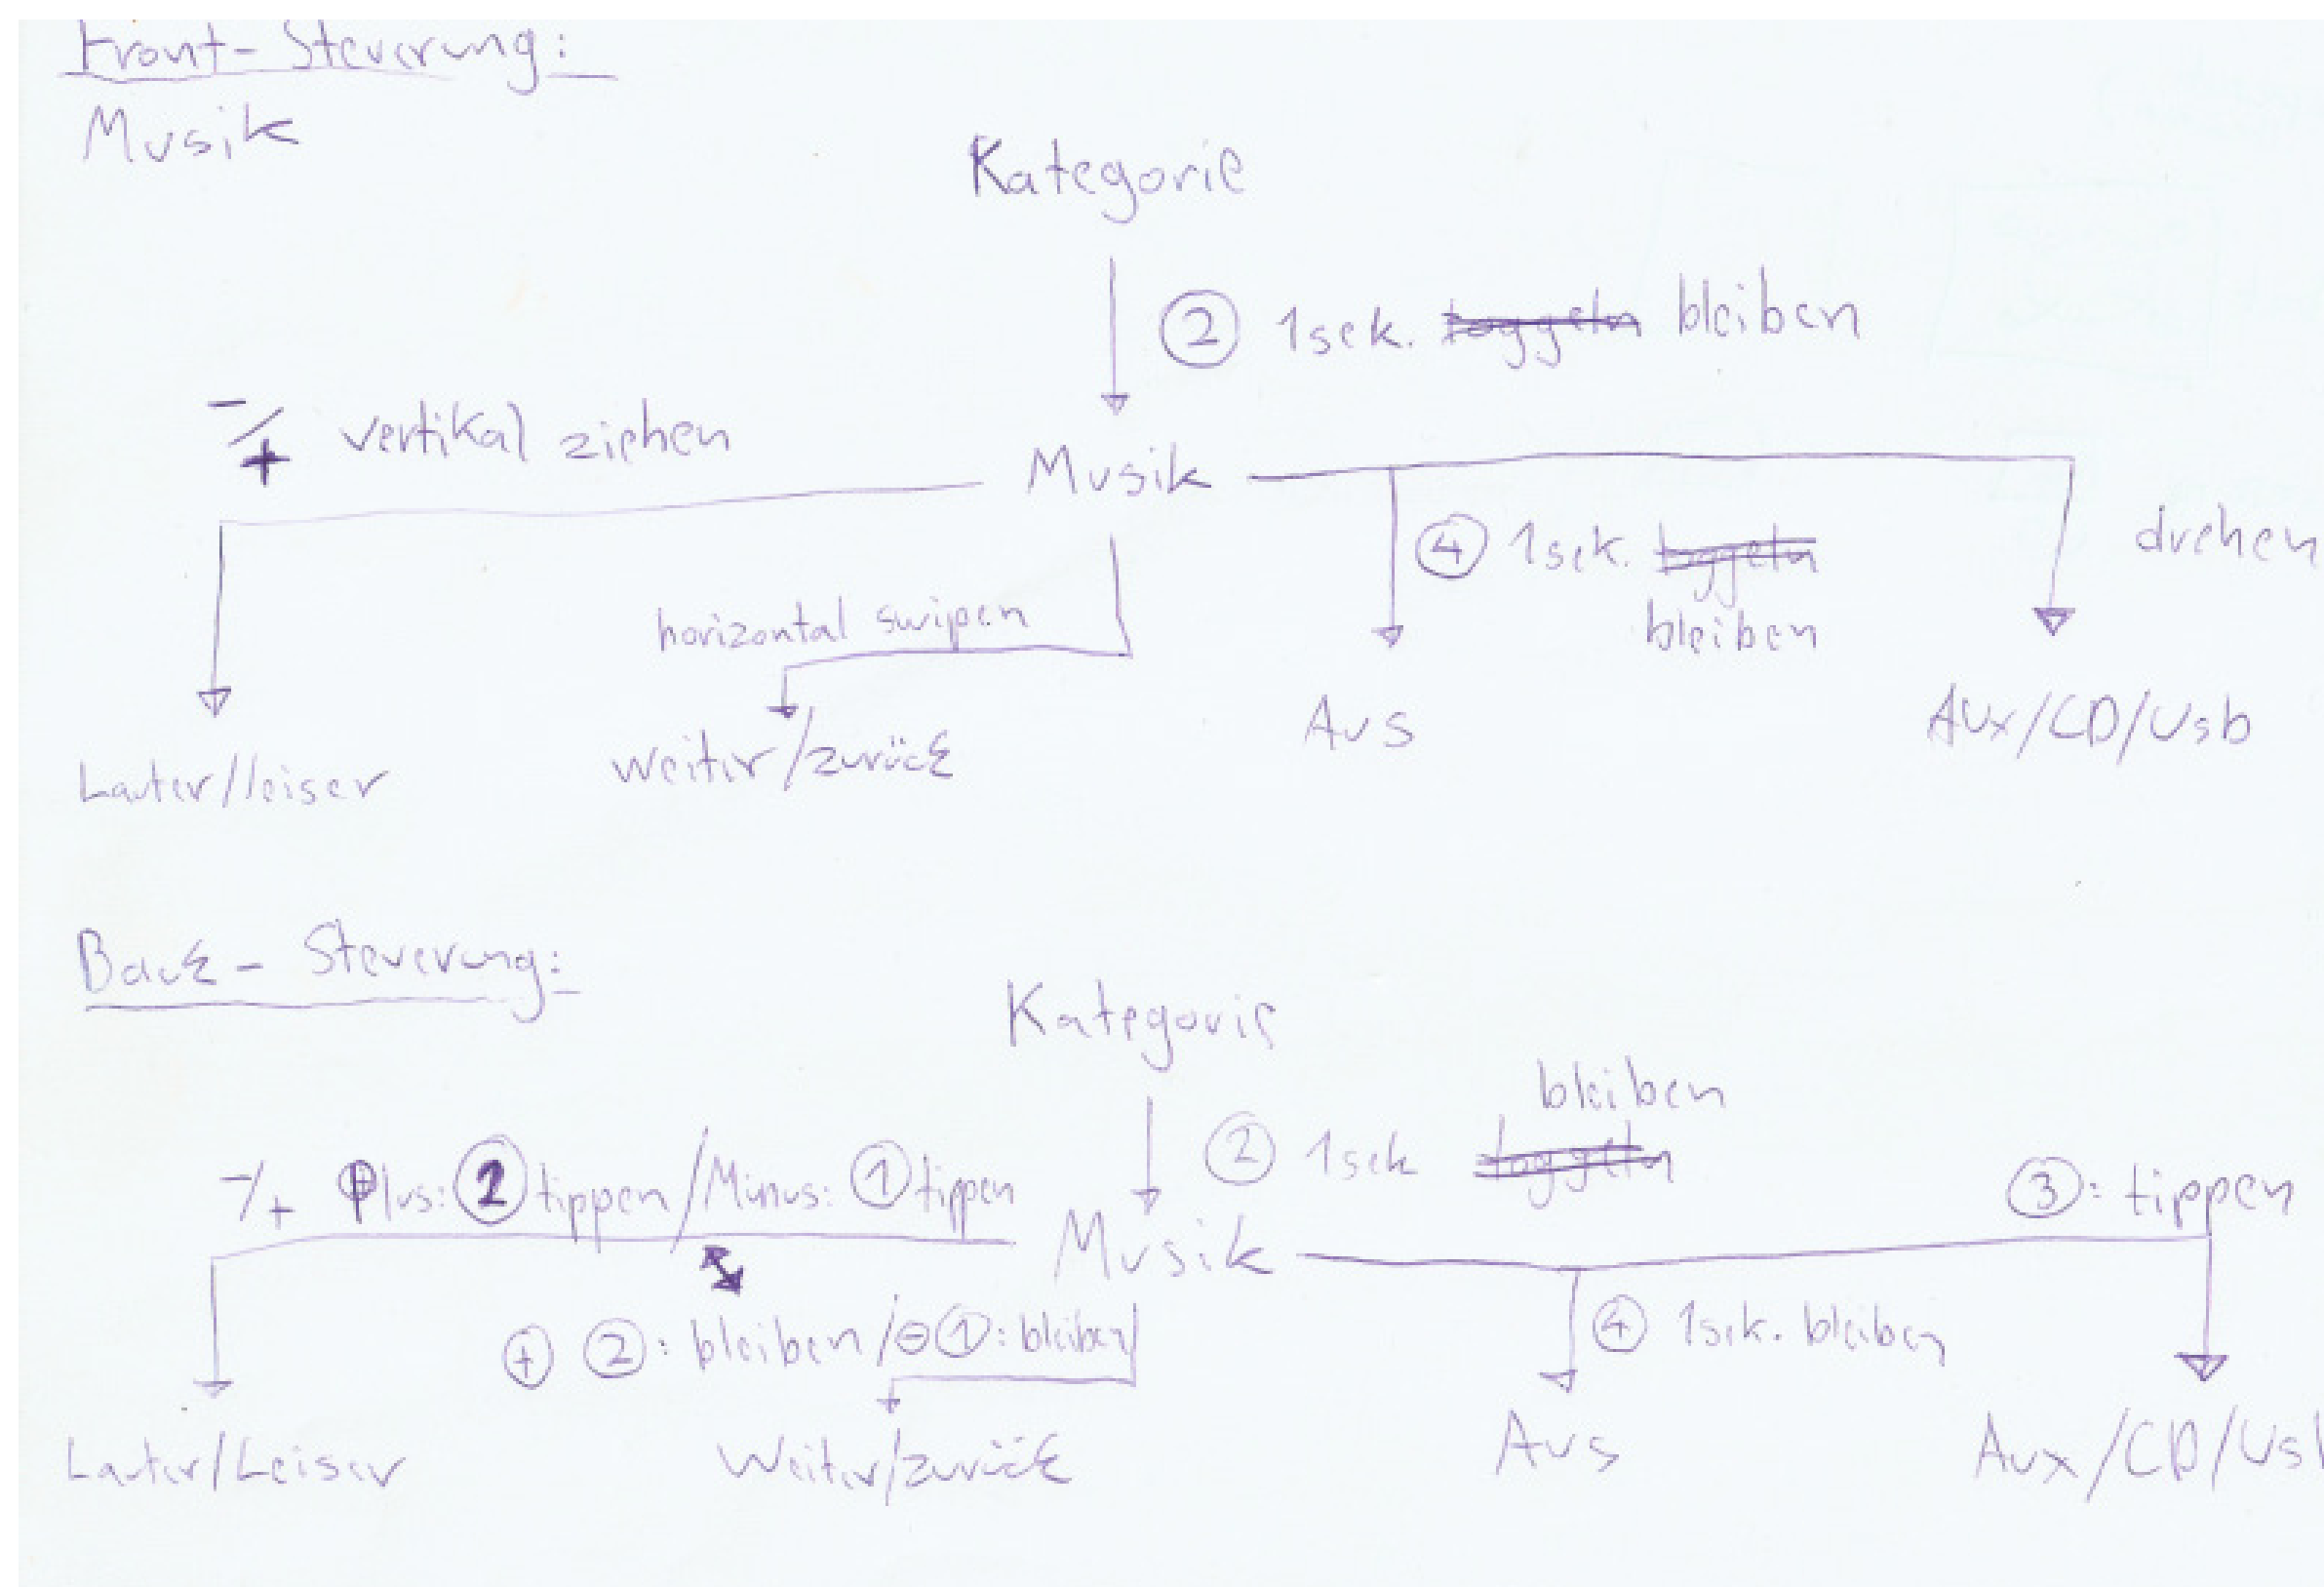 Front-Steuerung:
Musik
Kategorie
② 1sek. toggeln bleiben
-/+ vertikal ziehen
Musik
④ 1sek. toggeln
bleiben
drehen
horizontal swipen
Lauter/leiser
weiter/zurück
Aus
Aux/CD/Usb
Back-Steuerung:
Kategorie
bleiben
② 1sek toggeln
-/+ Plus: ② tippen/Minus: ① tippen
③: tippen
Musik
⊕ ②: bleiben/⊖①: bleiben
④ 1sek. bleiben
Lauter/Leiser
Weiter/zurück
Aus
Aux/CD/Usb